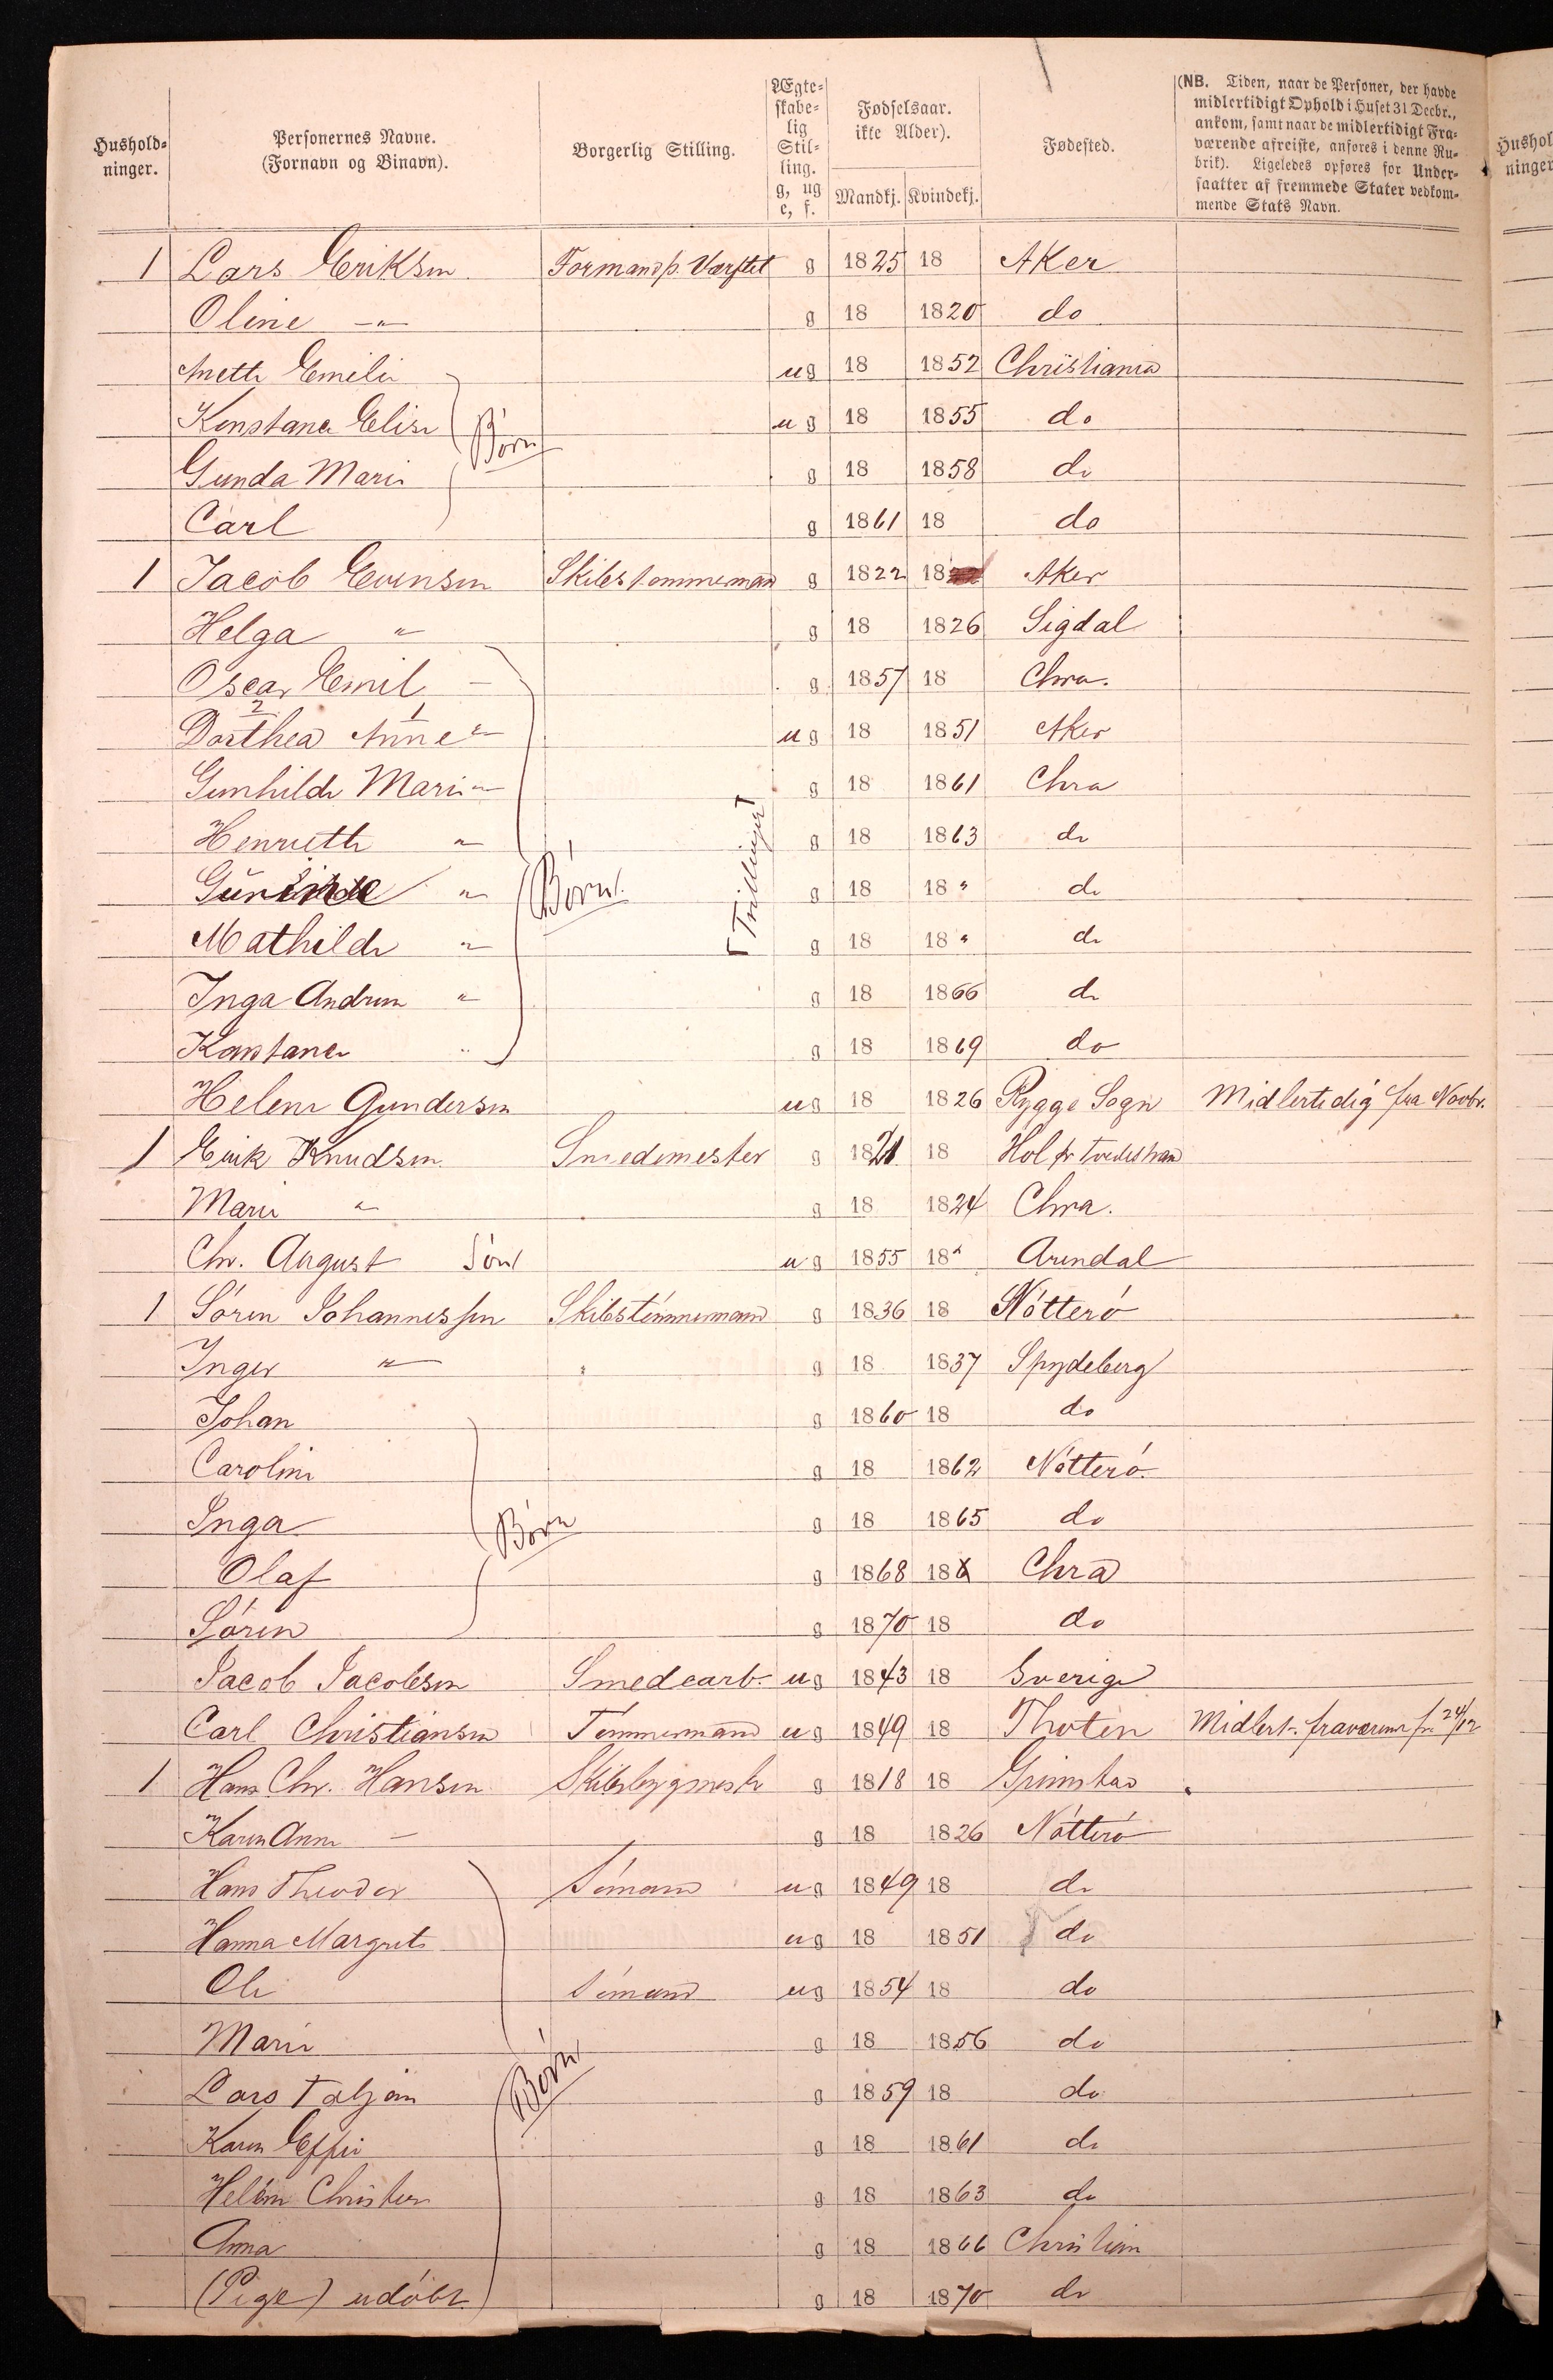 Hushold-
ninger.
Personernes Navne.
(Fornavn og Binavn).
Borgerlig Stilling.
Ægte-
skabe-
lig
Stil-
ling.
g, ug
e, f.
Fødselsaar.
ikke Alder).
Mandkj. Kvindekj.
Fødested.
(NB. Tiden, naar de Personer, der havde
midlertidigt Ophold i Huset 31 Decbr.,
ankom, samt naar de midlertidigt Fra-
værende afreiste, anføres i denne Ru-
brik). Ligeledes opføres for Under-
saatter af fremmede Stater vedkom-
mende Stats Navn.
Hushol
ninger
1 Lars Eriksen Formand p. Værftet g 1825 18 Aker
Oline -"- g 18 1820 do
Anette Emilie ug 18 1852 Christiania
Konstance Elise ug 18 1855 do
Børn
Gunda Marie g 18 1858 do
Carl g 1861 18 do
1 Jacob Evensen Skibstømmermand g 1822 18 Aker
Helga " g 18 1826 Sigdal
Oscar Emil - g 1857 18 Chra.
2 1
Dorthea Anne " ug 18 1851 Aker
Gunhilde Marie " g 18 1861 Chra
Henriette " g 18 1863 do
Børn
Trillinger
" g 18 18 " do
Mathilde " g 18 18 " do
Inga Andrea " g 18 1866 do
Konstance " g 18 1869 do
Helene Gundersen ug 18 1826 Rygge Sogn Midlertidig fra Novbr.
1 Erik Knudsen Smedemester g 1821 18 Hol pr Tvedestrand
Marie " g 18 1824 Chra.
Chr. August Søn ug 1855 18 " Arendal
1 Søren Johannessen Skibstømmermand g 1836 18 Nøtterø
Inger " " g 18 1837 Spydeberg
Johan g 1860 18 do
Caroline g 18 1862 Nøtterø
Inga g 18 1865 do
Børn
Olaf g 1868 18 Chra
Søren g 1870 18 do
Jacob Jacobsen Smedearb. ug 1843 18 Sverige
Carl Christiansen Tømmermand ug 1849 18 Thoten Midlert. fraværende fra 24/12
1 Hans Chr. Hansen Skibsbygmester g 1818 18 Grimstad
Karen Anne - g 18 1826 Nøtterø
Hans Theodor Sømand ug 1849 18 do
Hanna Margrete ug 18 1851 do
Ole Sømand ug 1854 18 do
Marie g 18 1856 do
Børn
Lars g 1859 18 do
Karen g 18 1861 do
Helene Christine g 18 1863 do
Anna g 18 1866 Christian
(Pige) udøbt g 18 1870 do